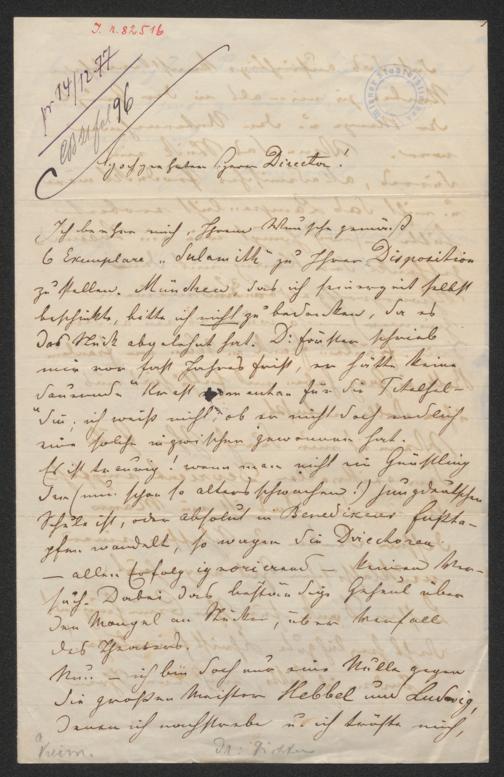 I. N. 82516
pr 14/12 77
96
Hochgeehrter Herr Director!
Ich beehre mich, Ihrem Wunsche gemäß
6 Exemplare „Sulamith" zu Ihrer Disposition
zu stellen. München, das ich seinerzeit selbst
beschickte, bitte ich nicht zu bedenken, da es
das Stück abgelehnt hat. D. Förster schrieb
mir vor fast Jahresfrist, er hätte keine
Kraft momentan für die Titelhel-
din; ich weiß nicht ob er nicht doch endlich
eine solche inzwischen gewonnen hat.
Es ist traurig: wenn man nicht ein Günstling
der (nun schon so altersschwachen!) jungdeutschen
Schule ist, oder absolut in Benedixens Fußsta-
pfen wandelt, so wagen die Directoren
– allen Erfolg ignorirend – keinen Ver-
such. Dabei das beständige Geheul über
den Mangel an Stücken, über Verfall
des Theaters.
Nun – ich bin doch nur eine Nulle gegen
die großen Meister Hebbel und Ludwig,
denen ich nachstrebe u. ich tröste mich,